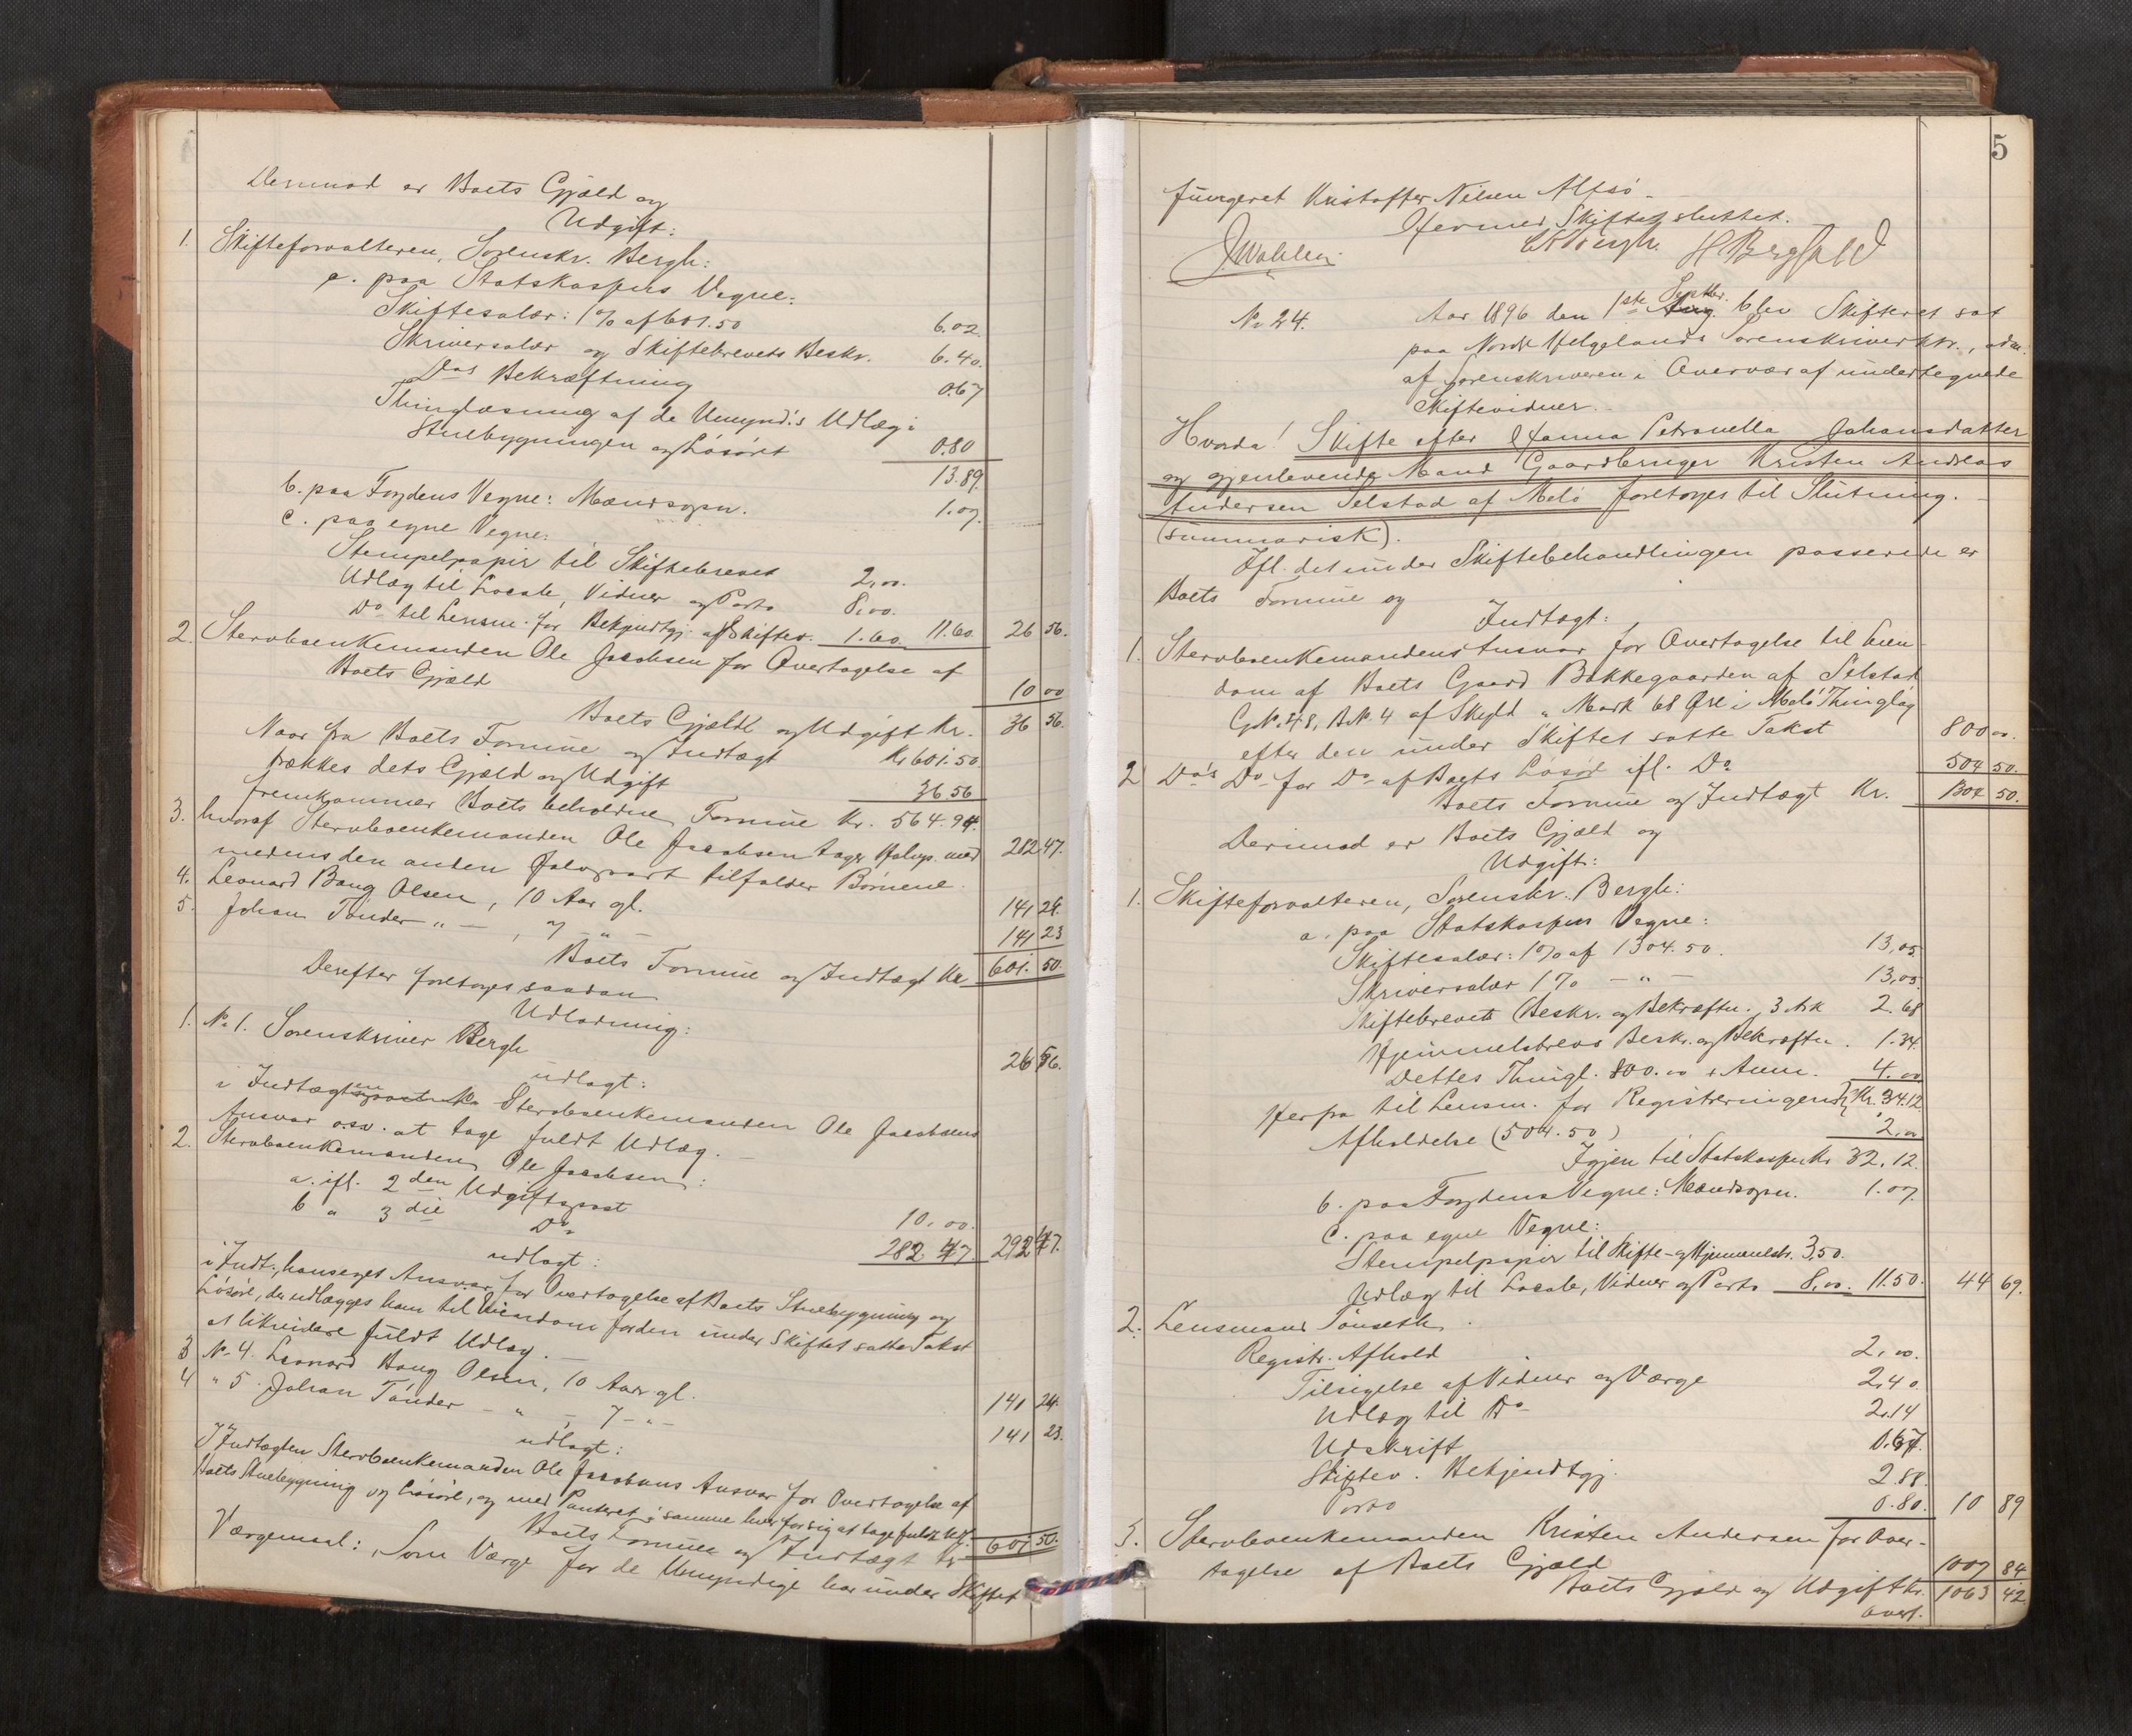 Derimod er Boets Gjæld og
Udgift:
1. Skifteforvalteren, Sorenskr. Bergh:
a. paa Statskassens Vegne:
Skiftesalær: 1% af 601.50 6.02
Skriversalær og Skiftebrevets Beskr. 6.40.
Do's Bekræftning 0.67
Thinglæsning af de Umynd.s Udlæg i
Stuebygningen og Løsøret 0.80
13.89.
b. paa Fogdens Vegne: Mandsopn. 1.07.
c. paa egne Vegne:
Stempelpapir til Skiftebrevet 2,00.
Udlæg til Locale, Vidner og Porto 8,00.
Do til Lensm. for Bekjendtgj. af Skiftes. 1.60. 11.60. 26 56.
2. Sterboenkemanden Ole Jacobsen for Overtagelse af
Boets Gjæld 10 00
Boets Gjæld og Udgift Kr. 36 56.
Naar fra Boets Formue og Indtægt Kr 601.50.
trækkes dets Gjæld og Udgift 36 56
fremkommer Boets beholdne Formue Kr. 564.94.
3. hvoraf Sterboenkemanden Ole Jacobsen tager Halvp. med 282 47.
medens den anden Halvpart tilfalder Børnene.
4. Leonard Bang Olsen, 10 Aar gl. 141 24.
5. Johan Tønder " — , 7 — " — 141 23
Boets Formue og Indtægt Kr 601. 50.
Derefter foretoges saadan
Udlodning:
1. No 1. Sorenskriver Bergh 26 56.
udlagt:
i Indtægten Sterboenkemanden Ole Jacobsens
Ansvar o.s.v. at tage fuldt Udlæg. —
2. Sterboenkemanden Ole Jacobsen:
a. ifl. 2den Udgiftspost 10,00.
b " 3die Do 282.47. 292 47.
udlagt:
i Indt., hans eget Ansvar for Overtagelse af Boets Stuebygning og
Løsøre, der udlægges ham til Eiendom for den under Skiftet satte Takst
at likvidere fuldt Udlæg. —
3 No 4. Leonard Bang Olsen, 10 Aar gl. 141 24.
4 " 5. Johan Tønder — " — , 7 — " — 141 23.
udlagt:
I Indtægten Sterboenkemanden Ole Jacobsens Ansvar for Overtagelse af
Boets Stuebygning og Løsøre, og med Panteret i samme hver for sig at tage fuldt Udl.
Boets Formue og Indtægt Kr 601 50.
Værgemaal: Som Værge for de Umyndige har under Skiftet
5
fungeret Kristoffer Nilsen Altsø —
Hermed Skiftet sluttet.
Bergh. H Bergfald
J Wahlen.
No 24. Aar 1896 den 1ste Septbr. blev Skifteret sat
paa Nordr Helgelands Sorenskriverktr., adm.
af Sorenskriveren i Overvær af undertegnede
Skiftevidner. —
Hvorda! Skifte efter Hanna Petronella Johansdatter
og gjenlevende Mand Gaardbruger Kristen Andreas
Andersen Selstad af Melø foretoges til Slutning. —
(summarisk).
Ifl. det under Skiftebehandlingen passerede er
Boets Formue og
Indtægt:
1. Sterboenkemandens Ansvar for Overtagelse til Eien
dom af Boets Gaard Bakkegaarden af Selstad
G.No. 48, B.No. 4 af Skyld " Mark 68 Øre i Melø Thinglag
efter den under Skiftet satte Takst 800 00.
2 Do's Do for Do af Boets Løsøre ifl. Do 504 50.
Boets Formue og Indtægt Kr. 1304 50.
Derimod er Boets Gjæld og
Udgift:
1. Skifteforvalteren, Sorenskr. Bergh:
a. paa Statskassens Vegne:
Skiftesalær: 1% af 1304.50. 13,05.
Skriversalær 1% — " — 13,05.
Skiftebrevets Beskr. og Bekræftn., 3 Ark 2.68
Hjemmelsbrevs Beskr. og Bekræftn. 1.34.
Dettes Thingl. 800.00 + Anm. 4.00
Kr. 34.12
Herfra til Lensm. for Registreringens
Afholdelse (504.50) 2,00
Igjen til Statskassen Kr 32.12.
b. paa Fogdens Vegne: Mandsopn. 1.07.
c. paa egne Vegne:
Stempelpapir til Skifte- og Hjemmelsbr. 3,50.
Udlæg til Locale, Vidner og Porto 8,00. 11.50. 44 69.
2. Lensmand Tønseth.
Registr. Afhold 2,00.
Tilsigelse af Vidner og Værge 2,40.
Udlæg til Do 2.14
Udskrift 0.67.
Skiftev. Bekjendtgj. 2.88.
Porto 0.80. 10 89
3. Sterboenkemanden Kristen Andersen for Over-
tagelse af Boets Gjæld 1007 84
Boets Gjæld og Udgift Kr. 1063 42
overf.